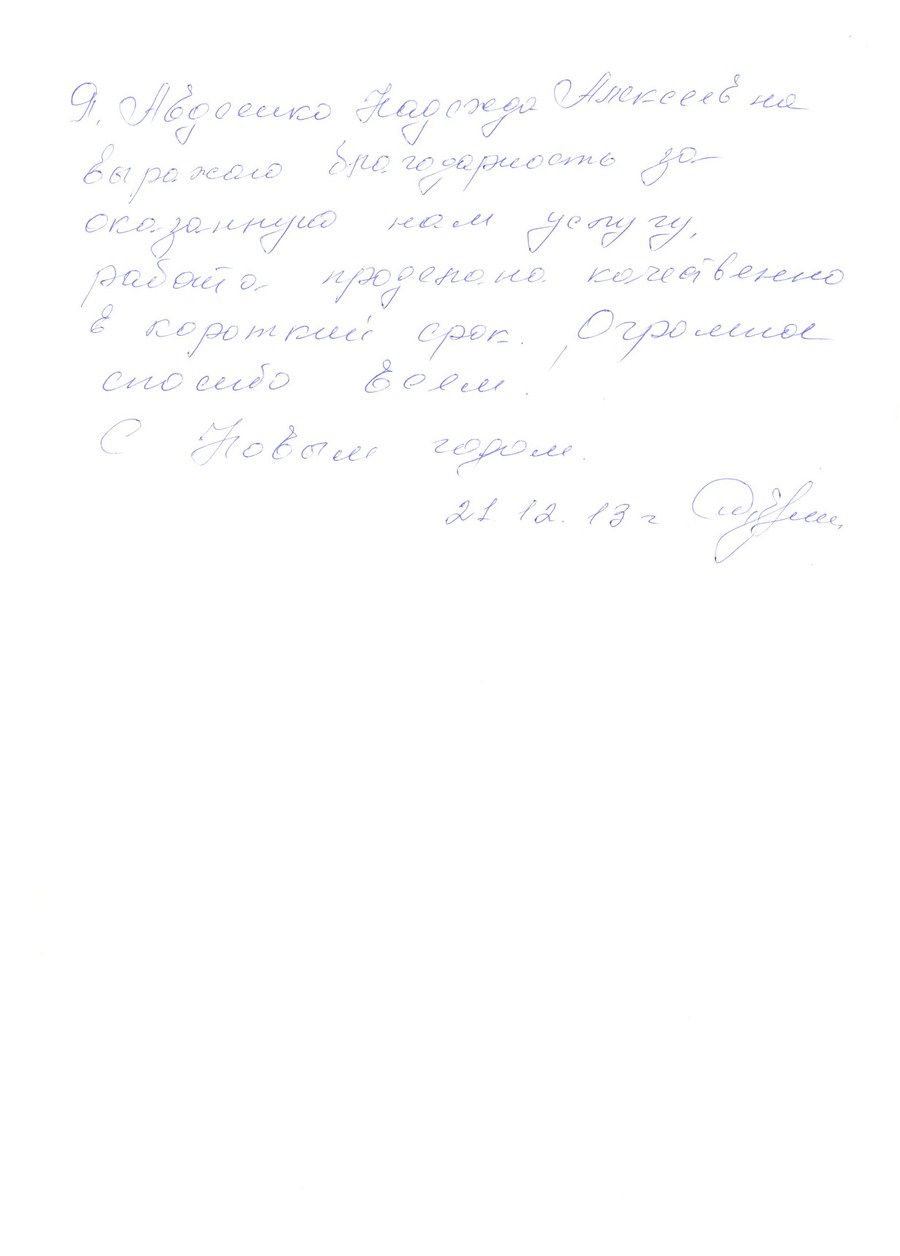 Я, Авдеенко Надежда Алексеевна
выражаю благодарность за
оказанную нам услугу,
работа проделана качественно
в короткий срок. Огромное
спасибо Всем.
С Новым годом.
21.12.13 г